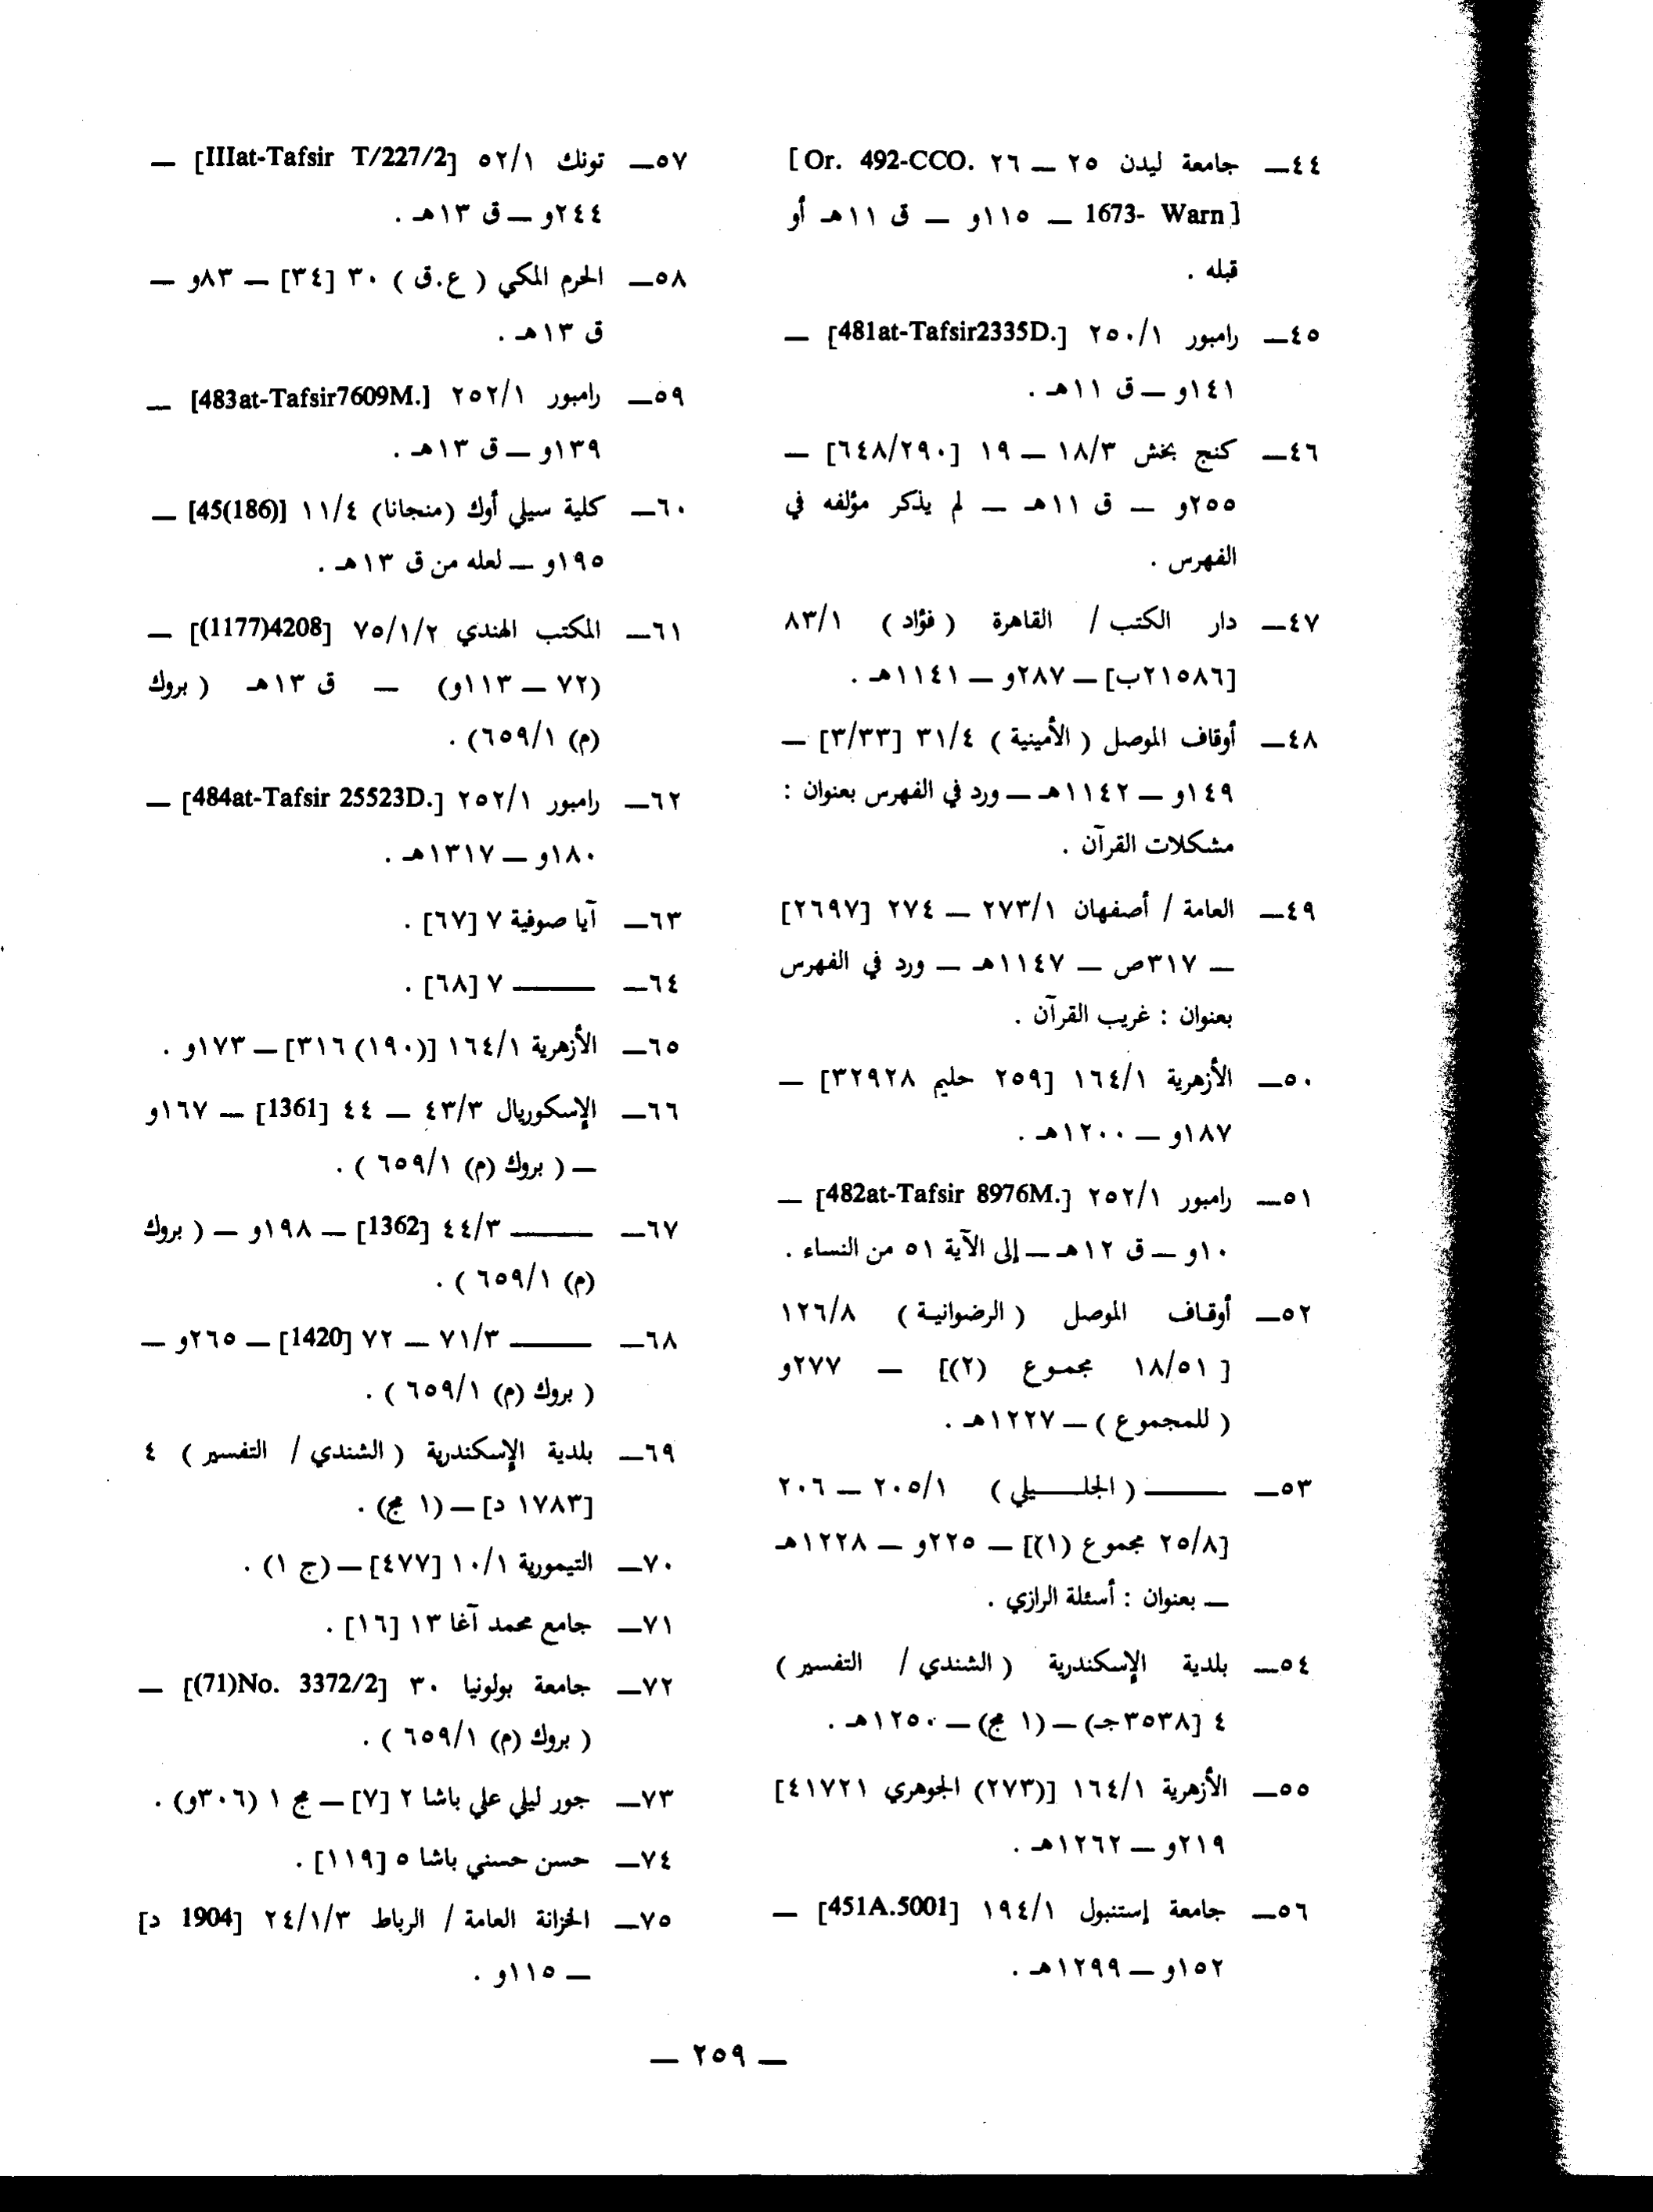 ٤٤ــ جامعة ليدن ٢٥ ــ ٢٦ [Or. 492-CCO.
1673- Warn] ــ ١١٥و ــ ق ١١هـ أو
قبله .
٤٥ــ رامبور ٢٥٠/١ [481at-Tafsir2335D.] ــ
١٤١و ــ ق ١١هـ .
٤٦ــ كنج بخش ١٨/٣ ــ ١٩ [٦٤٨/٢٩٠] ــ
٢٥٥و ــ ق ١١هـ ــ لم يذكر مؤلفه في
الفهرس .
٤٧ــ دار الكتب / القاهرة ( فؤاد ) ٨٣/١
[٢١٥٨٦ب] ــ ٢٨٧و ــ ١١٤١هـ .
٤٨ــ أوقاف الموصل ( الأمينية ) ٣١/٤ [٣/٣٣] ــ
١٤٩و ــ ١١٤٢هـ ــ ورد في الفهرس بعنوان :
مشكلات القرآن .
٤٩ــ العامة / أصفهان ٢٧٣/١ ــ ٢٧٤ [٢٦٩٧]
ــ ٣١٧ص ــ ١١٤٧هـ ــ ورد في الفهرس
بعنوان : غريب القرآن .
٥٠ــ الأزهرية ١٦٤/١ [٢٥٩ حليم ٣٢٩٢٨] ــ
١٨٧و ــ ١٢٠٠هـ .
٥١ــ رامبور ٢٥٢/١ [482at-Tafsir 8976M.] ــ
١٠و ــ ق ١٢هـ ــ إلى الآية ٥١ من النساء .
٥٢ــ أوقاف الموصل ( الرضوانية ) ١٢٦/٨
[ ١٨/٥١ مجموع (٢)] ــ ٢٧٧و
( للمجموع ) ــ ١٢٢٧هـ .
٥٣ــ ــــــــ ( الجلـــيلي ) ٢٠٥/١ ــ ٢٠٦
[٢٥/٨ مجموع (١)] ــ ٢٢٥و ــ ١٢٢٨هـ
ــ بعنوان : أسئلة الرازي .
٥٤ــ بلدية الإسكندرية ( الشندي / التفسير )
٤ [٣٥٣٨جـ) ــ (١ مج) ــ ١٢٥٠هـ .
٥٥ــ الأزهرية ١٦٤/١ [(٢٧٣) الجوهري ٤١٧٢١]
٢١٩و ــ ١٢٦٢هـ .
٥٦ــ جامعة إستنبول ١٩٤/١ [451A.5001] ــ
١٥٢و ــ ١٢٩٩هـ .
٥٧ــ تونك ٥٢/١ [IIIat-Tafsir T/227/2] ــ
٢٤٤و ــ ق ١٣هـ .
٥٨ــ الحرم المكي ( ع.ق ) ٣٠ [٣٤] ــ ٨٣و ــ
ق ١٣هـ .
٥٩ــ رامبور ٢٥٢/١ [483at-Tafsir7609M.] ــ
١٣٩و ــ ق ١٣هـ .
٦٠ــ كلية سيلي أوك (منجانا) ١١/٤ [45(186)] ــ
١٩٥و ــ لعله من ق ١٣هـ .
٦١ــ المكتب الهندي ٧٥/١/٢ [(1177)4208] ــ
(٧٢ ــ ١١٣و) ــ ق ١٣هـ ( بروك
(م) ٦٥٩/١) .
٦٢ــ رامبور ٢٥٢/١ [484at-Tafsir 25523D.] ــ
١٨٠و ــ ١٣١٧هـ .
٦٣ــ آيا صوفية ٧ [٦٧] .
٦٤ــ ــــــــ ٧ [٦٨] .
٦٥ــ الأزهرية ١٦٤/١ [(١٩٠) ٣١٦] ــ ١٧٣و .
٦٦ــ الإسكوريال ٤٣/٣ ــ ٤٤ [1361] ــ ١٦٧و
ــ ( بروك (م) ٦٥٩/١ ) .
٦٧ــ ــــــــ ٤٤/٣ [1362] ــ ١٩٨و ــ ( بروك
(م) ٦٥٩/١ ) .
٦٨ــ ــــــــ ٧١/٣ ــ ٧٢ [1420] ــ ٢٦٥و ــ
( بروك (م) ٦٥٩/١ ) .
٦٩ــ بلدية الإسكندرية ( الشندي / التفسير ) ٤
[١٧٨٣ د] ــ (١ مج) .
٧٠ــ التيمورية ١٠/١ [٤٧٧] ــ (ج ١) .
٧١ــ جامع محمد آغا ١٣ [١٦] .
٧٢ــ جامعة بولونيا ٣٠ [(71)No. 3372/2] ــ
( بروك (م) ٦٥٩/١ ) .
٧٣ــ جور ليلي علي باشا ٢ [٧] ــ مج ١ (٣٠٦و) .
٧٤ــ حسن حسني باشا ٥ [١١٩] .
٧٥ــ الخزانة العامة / الرباط ٢٤/١/٣ [1904 د]
ــ ١١٥و .
ــ ٢٥٩ ــ